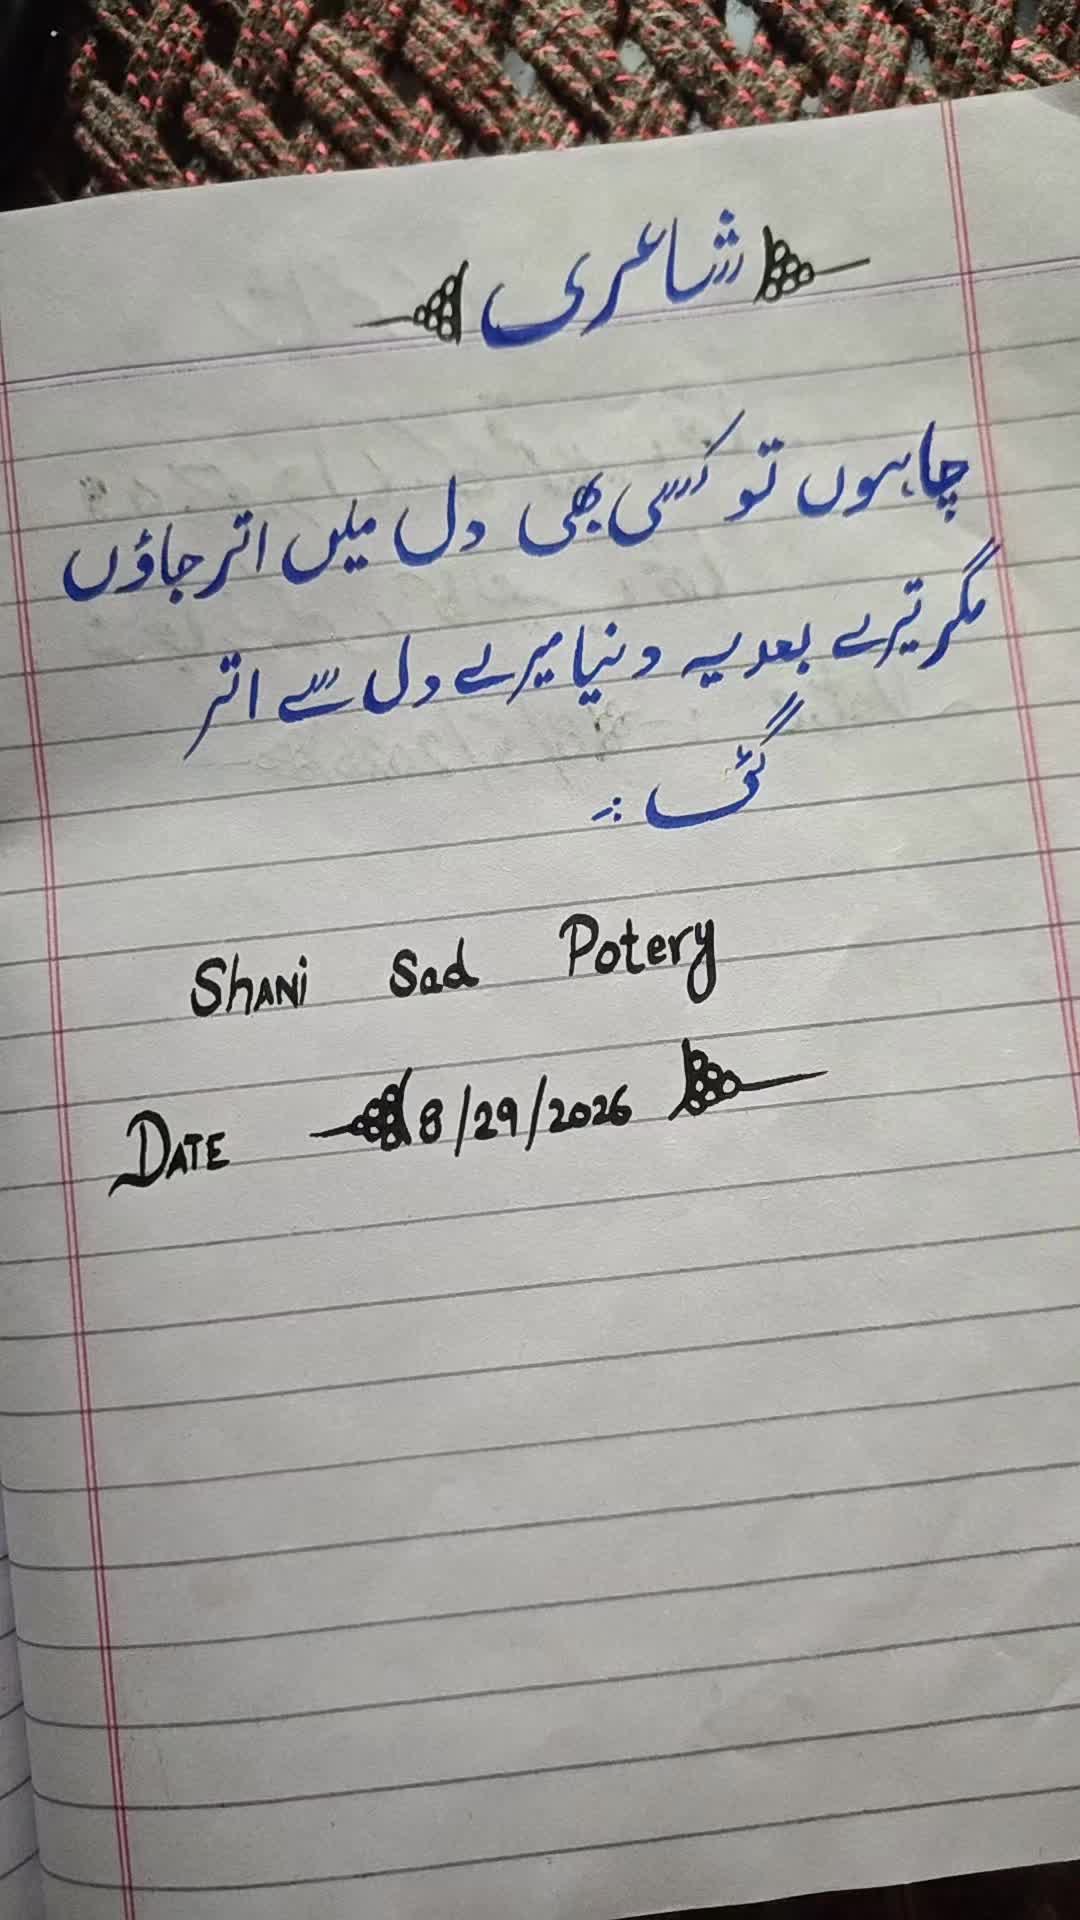 شاعری
چاہوں تو کسی بھی دل میں اتر جاؤں
مگر تیرے بعد یہ دنیا میرے دل سے اتر
گئی
Shani Sad Potery
DATE 8/29/2026